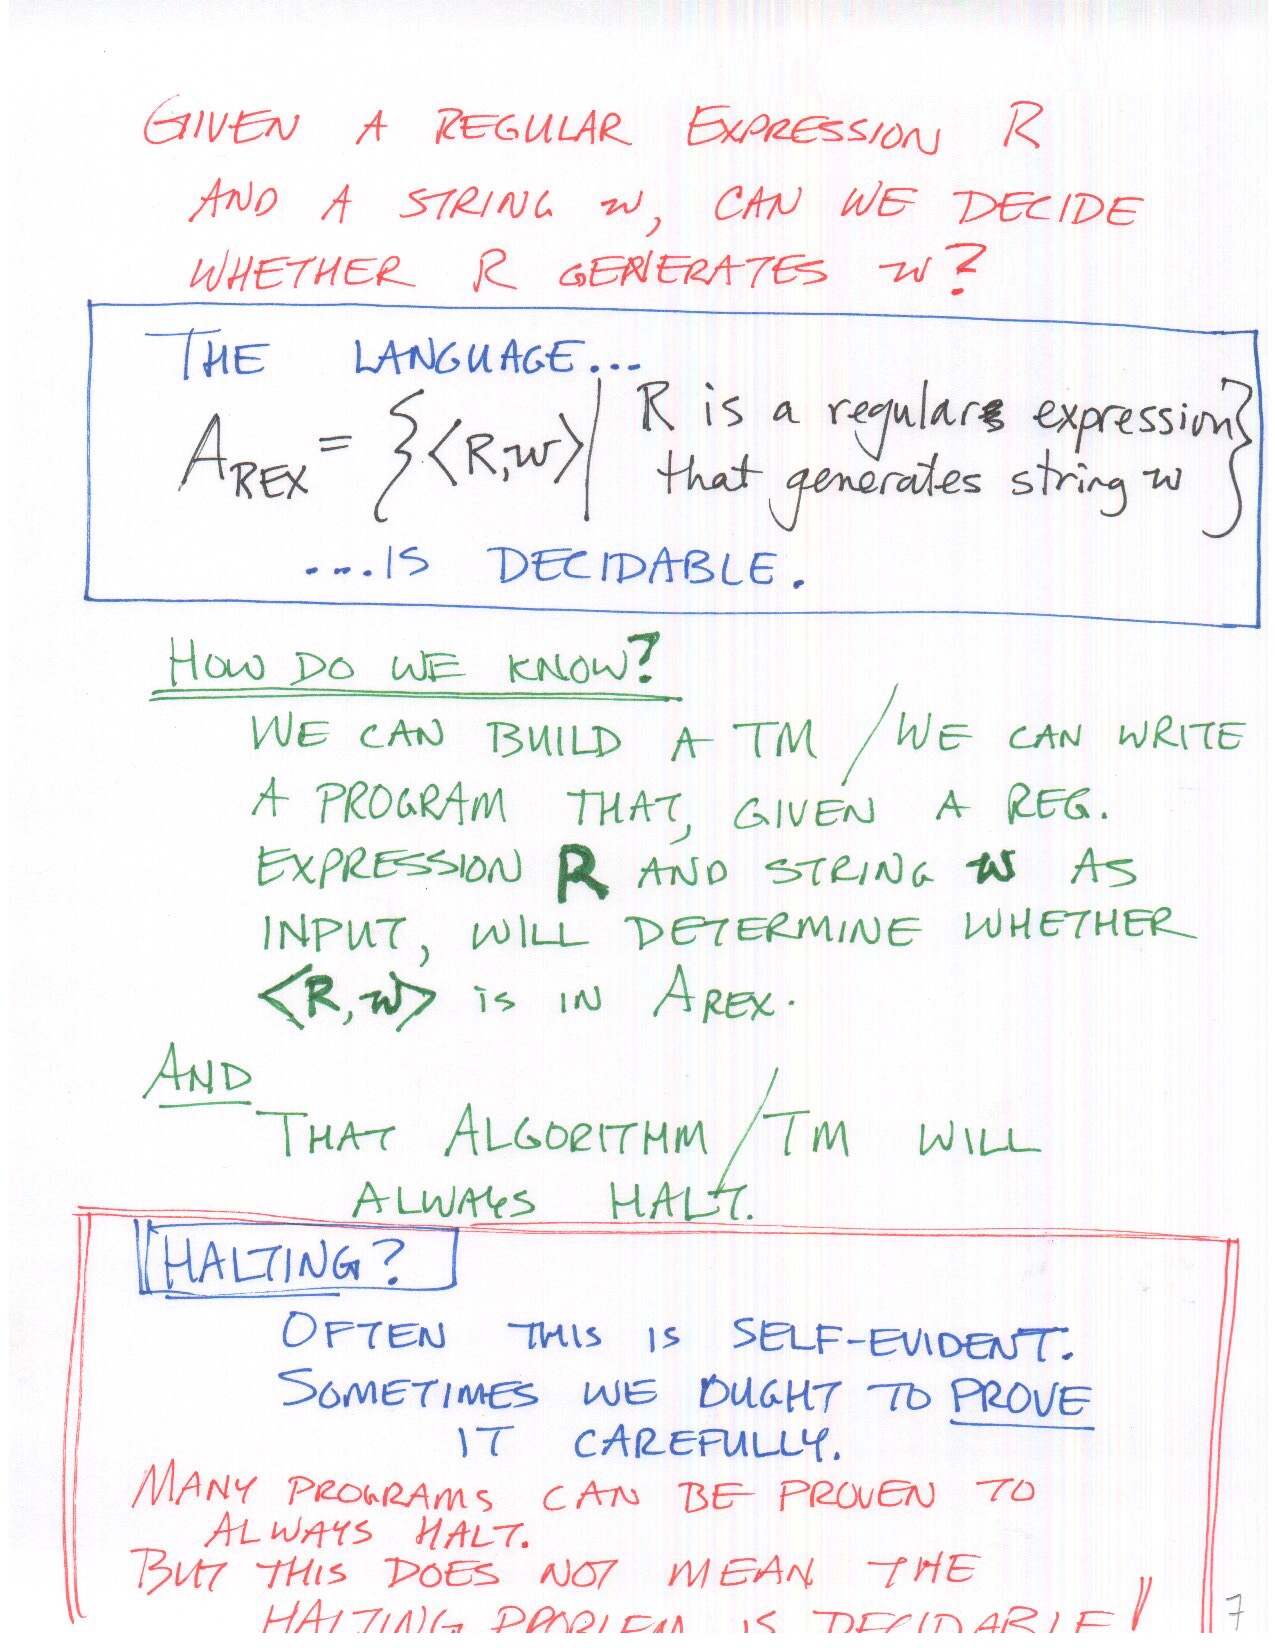 GIVEN A REGULAR EXPRESSION R
AND A STRING w, CAN WE DECIDE
WHETHER R GENERATES w?
THE LANGUAGE...
A_REX = {<R,w>| R is a regular expression
that generates string w}
....IS DECIDABLE.
HOW DO WE KNOW?
WE CAN BUILD A TM / WE CAN WRITE
A PROGRAM THAT, GIVEN A REG.
EXPRESSION R AND STRING w AS
INPUT, WILL DETERMINE WHETHER
<R,w> is IN A_REX.
AND
THAT ALGORITHM / TM WILL
ALWAYS HALT.
HALTING?
OFTEN THIS IS SELF-EVIDENT.
SOMETIMES WE OUGHT TO PROVE
IT CAREFULLY.
MANY PROGRAMS CAN BE PROVEN TO
ALWAYS HALT.
BUT THIS DOES NOT MEAN THE
HALTING PROBLEM IS DECIDABLE!
7